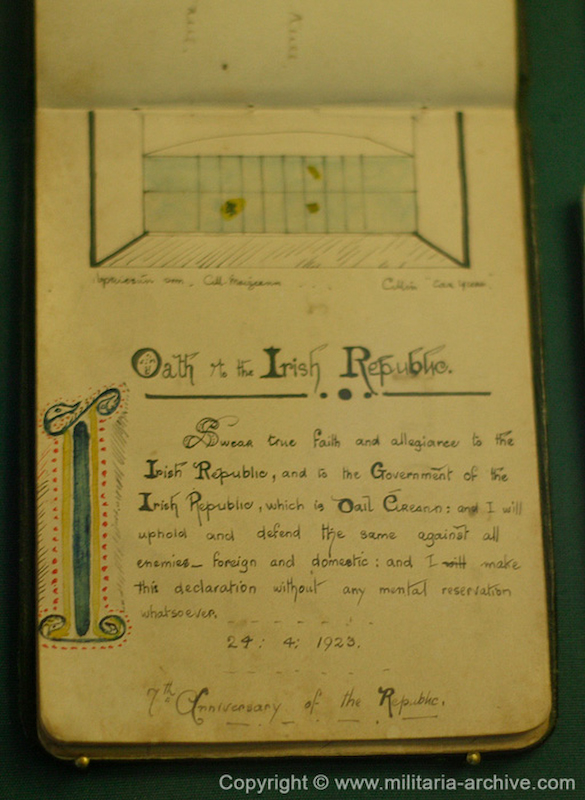 Oath to the Irish Republic.
I Swear true faith and allegiance to the
Irish Republic, and to the Government of the
Irish Republic, which is Dail Eireann: and I will
uphold and defend the same against all
enemies— foreign and domestic: and I will make
this declaration without any mental reservation
whatsoever.
24: 4: 1923.
7th Anniversary of the Republic.
Copyright © www.militaria-archive.com